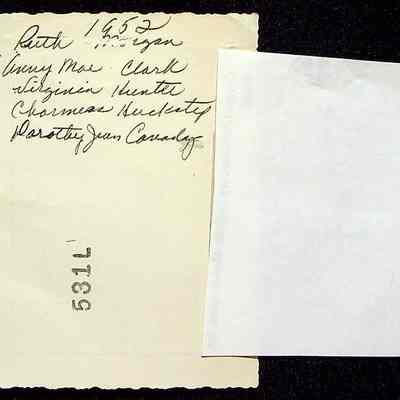 1952
Ruth Morgan
Anny Mae Clark
Virginia Hunter
Charmess Huckstep
Dorothy Jean Canaday
531L